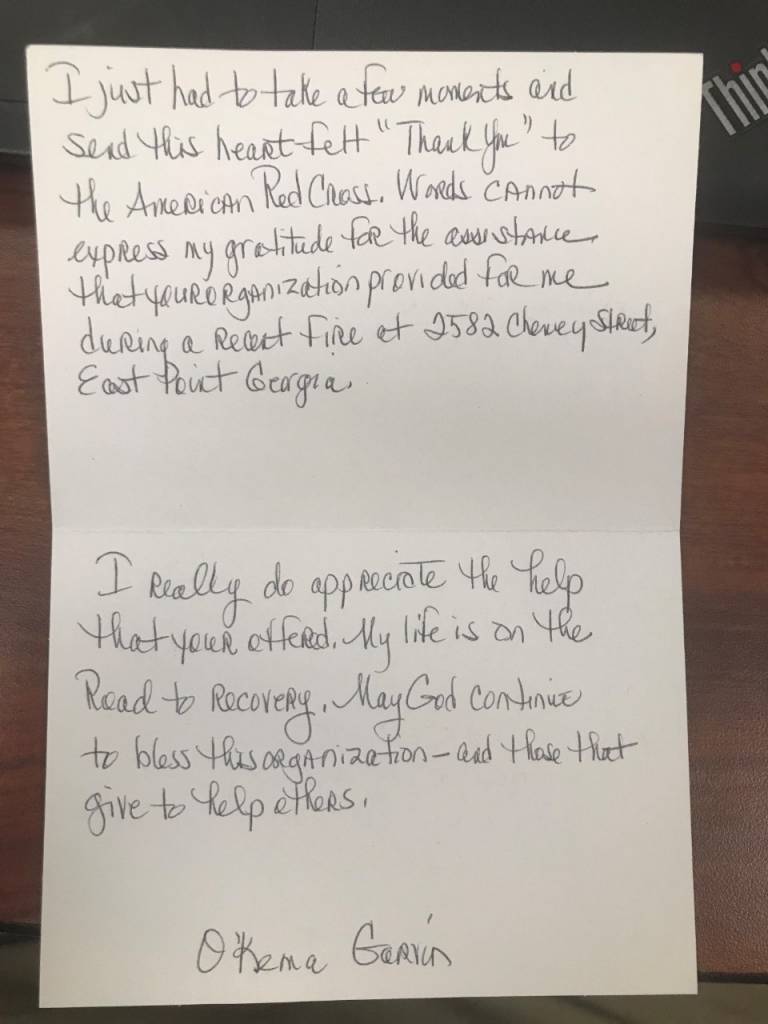 I just had to take a few moments and
send this heart-felt "Thank You" to
the American Red Cross. Words cannot
express my gratitude for the assistance
that your organization provided for me
during a recent fire at 2582 Cheney Street,
East Point Georgia.
I really do appreciate the help
that your offered. My life is on the
Road to Recovery. May God continue
to bless this organization - and those that
give to help others.
O'Kema Garvin
Think